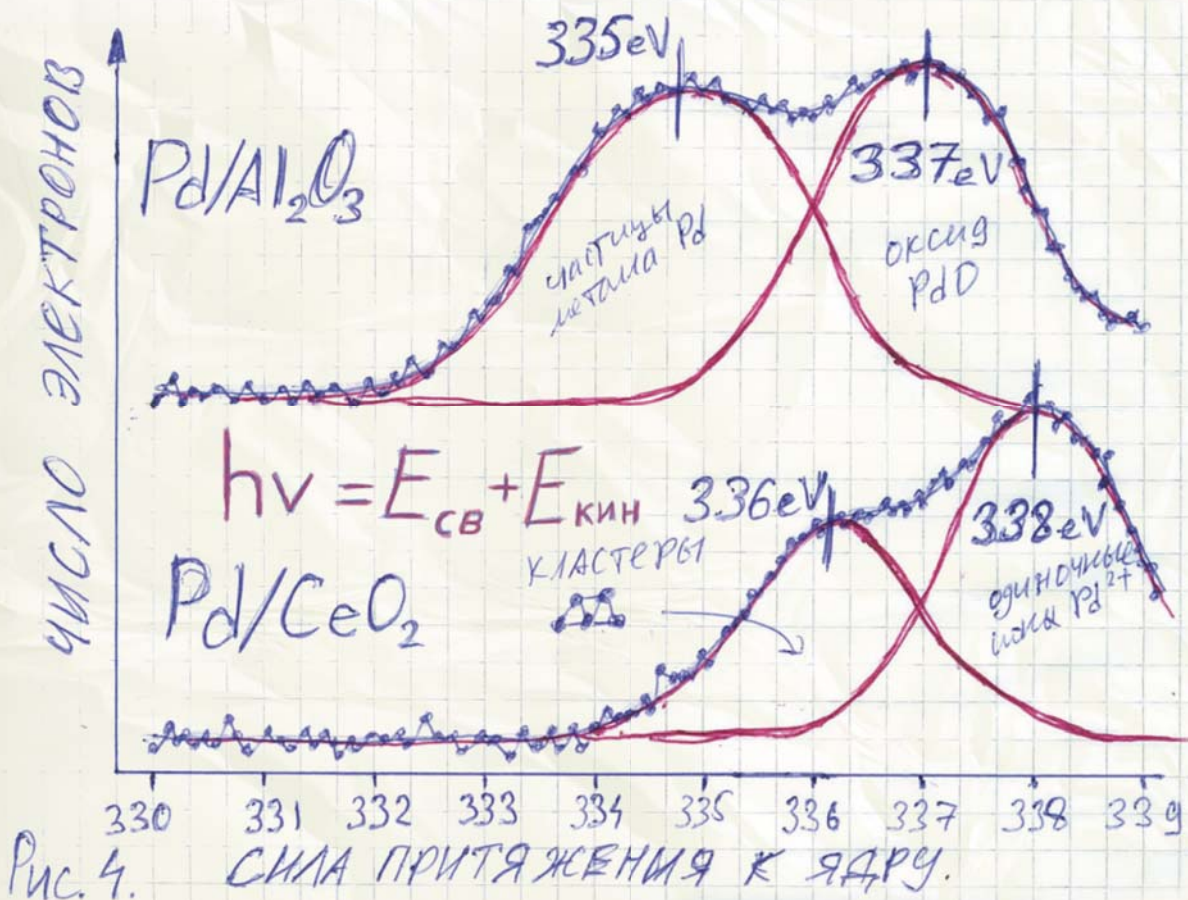 ЧИСЛО ЭЛЕКТРОНОВ
335eV
Pd/Al₂O₃
337eV
частицы
метала Pd
оксид
PdO
hν = Eсв + Eкин
336eV
338eV
кластеры
Pd/CeO₂
одиночные
ионы Pd²⁺
330 331 332 333 334 335 336 337 338 339
Рис. 4. СИЛА ПРИТЯЖЕНИЯ К ЯДРУ.